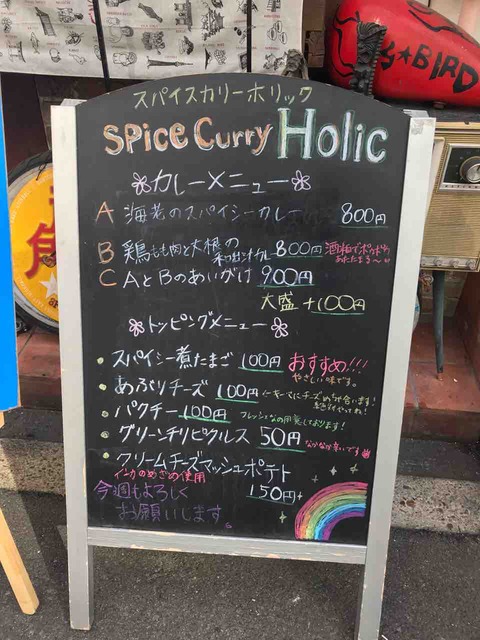 スパイスカリーホリック
SPice Curry Holic
カレーメニュー
A 海老のスパイシーカレー 800円
B 鶏もも肉と大根の 800円
C AとBのあいがけ 900円
大盛 +100円
トッピングメニュー
スパイシー煮たまご 100円 おすすめ!!!
やさしい味です。
あぶりチーズ 100円
パクチー 100円 フレッシュなの用意しております!
グリーンチリピクルス 50円 なかなか辛いです
クリームチーズマッシュポテト
インカのめざめ使用 150円
今週もよろしく
お願いします。
BIRD